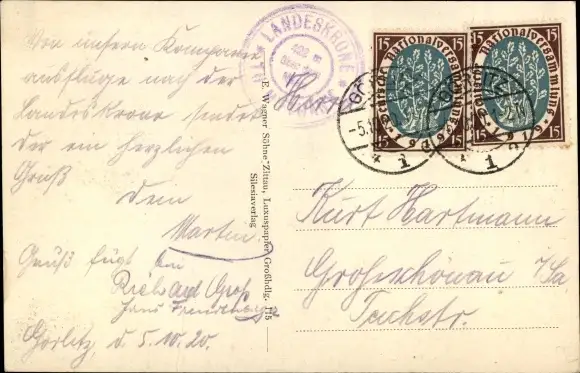 Von unsern Kompanie
ausfluge nach der
Landeskrone sendet
der ein herzlichen
Gruß
dem
Martin
Gruß fügt bei
Richard Groß
Hans
Görlitz, d. 5.10.20.
LANDESKRONE
420 m
E. Wagner Söhne-Zittau, Luxuspapier-Großhdlg. 115
Silesiaverlag
15 Deutsche Nationalversammlung 1919 15
15 15
15 Deutsche Nationalversammlung 1919 15
15 15
GÖRLITZ
1
GÖRLITZ
1
Herrn
Kurt Hartmann
Großschönau i/Sa.
Teichstr.